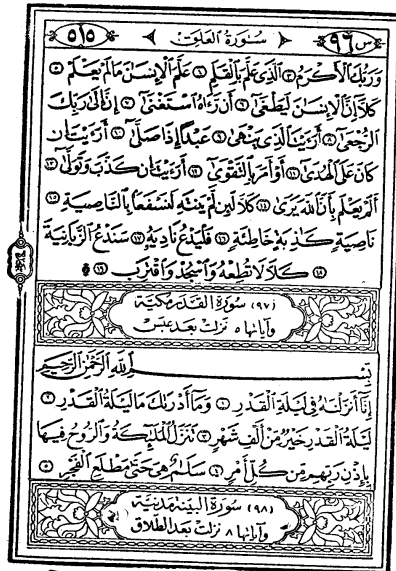 س ٩٦ سُورَةُ العَلَق ٥١٥
وَرَبُّكَ ٱلْأَكْرَمُ ٣ ٱلَّذِى عَلَّمَ بِٱلْقَلَمِ ٤ عَلَّمَ ٱلْإِنسَٰنَ مَا لَمْ يَعْلَمْ ٥
كَلَّآ إِنَّ ٱلْإِنسَٰنَ لَيَطْغَىٰٓ ٦ أَن رَّءَاهُ ٱسْتَغْنَىٰٓ ٧ إِنَّ إِلَىٰ رَبِّكَ
ٱلرُّجْعَىٰٓ ٨ أَرَءَيْتَ ٱلَّذِى يَنْهَىٰ ٩ عَبْدًا إِذَا صَلَّىٰٓ ١٠ أَرَءَيْتَ إِن
كَانَ عَلَى ٱلْهُدَىٰٓ ١١ أَوْ أَمَرَ بِٱلتَّقْوَىٰٓ ١٢ أَرَءَيْتَ إِن كَذَّبَ وَتَوَلَّىٰٓ ١٣
أَلَمْ يَعْلَم بِأَنَّ ٱللَّهَ يَرَىٰ ١٤ كَلَّا لَئِن لَّمْ يَنتَهِ لَنَسْفَعًۢا بِٱلنَّاصِيَةِ ١٥
نَاصِيَةٍ كَٰذِبَةٍ خَاطِئَةٍ ١٦ فَلْيَدْعُ نَادِيَهُۥ ١٧ سَنَدْعُ ٱلزَّبَانِيَةَ
١٨ كَلَّا لَا تُطِعْهُ وَٱسْجُدْ وَٱقْتَرِب ١٩
(٩٧) سُورَةُ القَدْرِ مَكِّيَّة
وَآيَاتُهَا ٥ نَزَلَتْ بَعْدَ عَبَسَ
بِسْمِ ٱللَّهِ ٱلرَّحْمَٰنِ ٱلرَّحِيمِ
إِنَّآ أَنزَلْنَٰهُ فِى لَيْلَةِ ٱلْقَدْرِ ١ وَمَآ أَدْرَىٰكَ مَا لَيْلَةُ ٱلْقَدْرِ ٢
لَيْلَةُ ٱلْقَدْرِ خَيْرٌ مِّنْ أَلْفِ شَهْرٍ ٣ تَنَزَّلُ ٱلْمَلَٰٓئِكَةُ وَٱلرُّوحُ فِيهَا
بِإِذْنِ رَبِّهِم مِّن كُلِّ أَمْرٍ ٤ سَلَٰمٌ هِىَ حَتَّىٰ مَطْلَعِ ٱلْفَجْرِ ٥
(٩٨) سُورَةُ البَيِّنَةِ مَدَنِيَّة
وَآيَاتُهَا ٨ نَزَلَتْ بَعْدَ الطَّلَاق